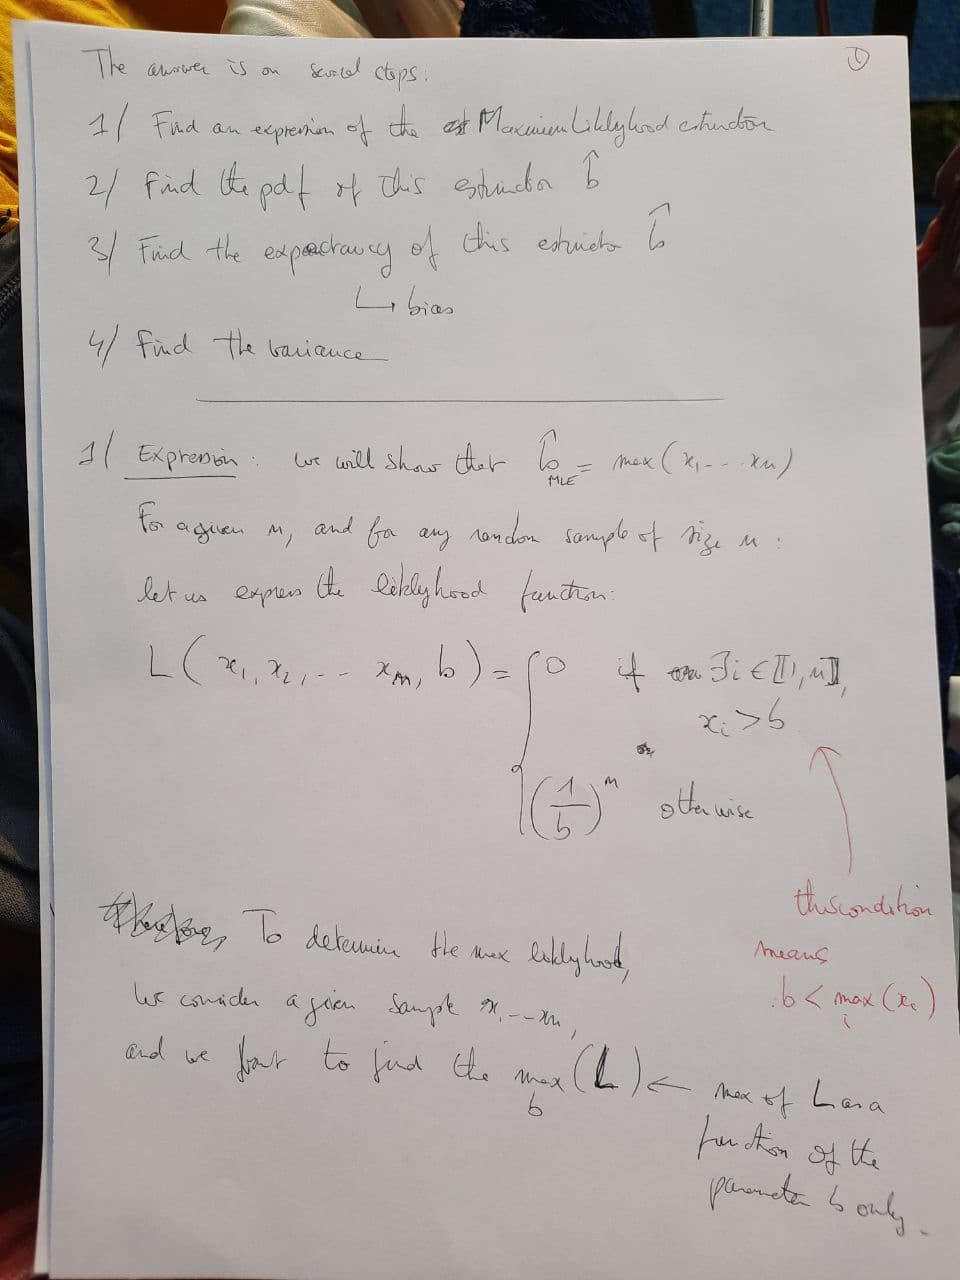 ①
The answer is on several steps:
1/ Find an expression of the Maximum Liklyhood estimator
2/ Find the pdf of this estimator b̂
3/ Find the expectancy of this estimator b̂
↳ bias
4/ Find the variance
1/ Expression: we will show that b̂_MLE = max(x₁ -- xₙ)
For a given n, and for any random sample of size n:
let us express the liklyhood function:
L(x₁, x₂, -- xₙ, b) = { 0 if ∃i ∈ ⟦1, n⟧,
xᵢ > b
(1/b)ⁿ otherwise
this condition
means
b < max(xᵢ)
i
To determine the max liklyhood,
We consider a given sample x₁ -- xₙ,
and we want to find the max(L) ← max of L as a
b
function of the
parameter b only.